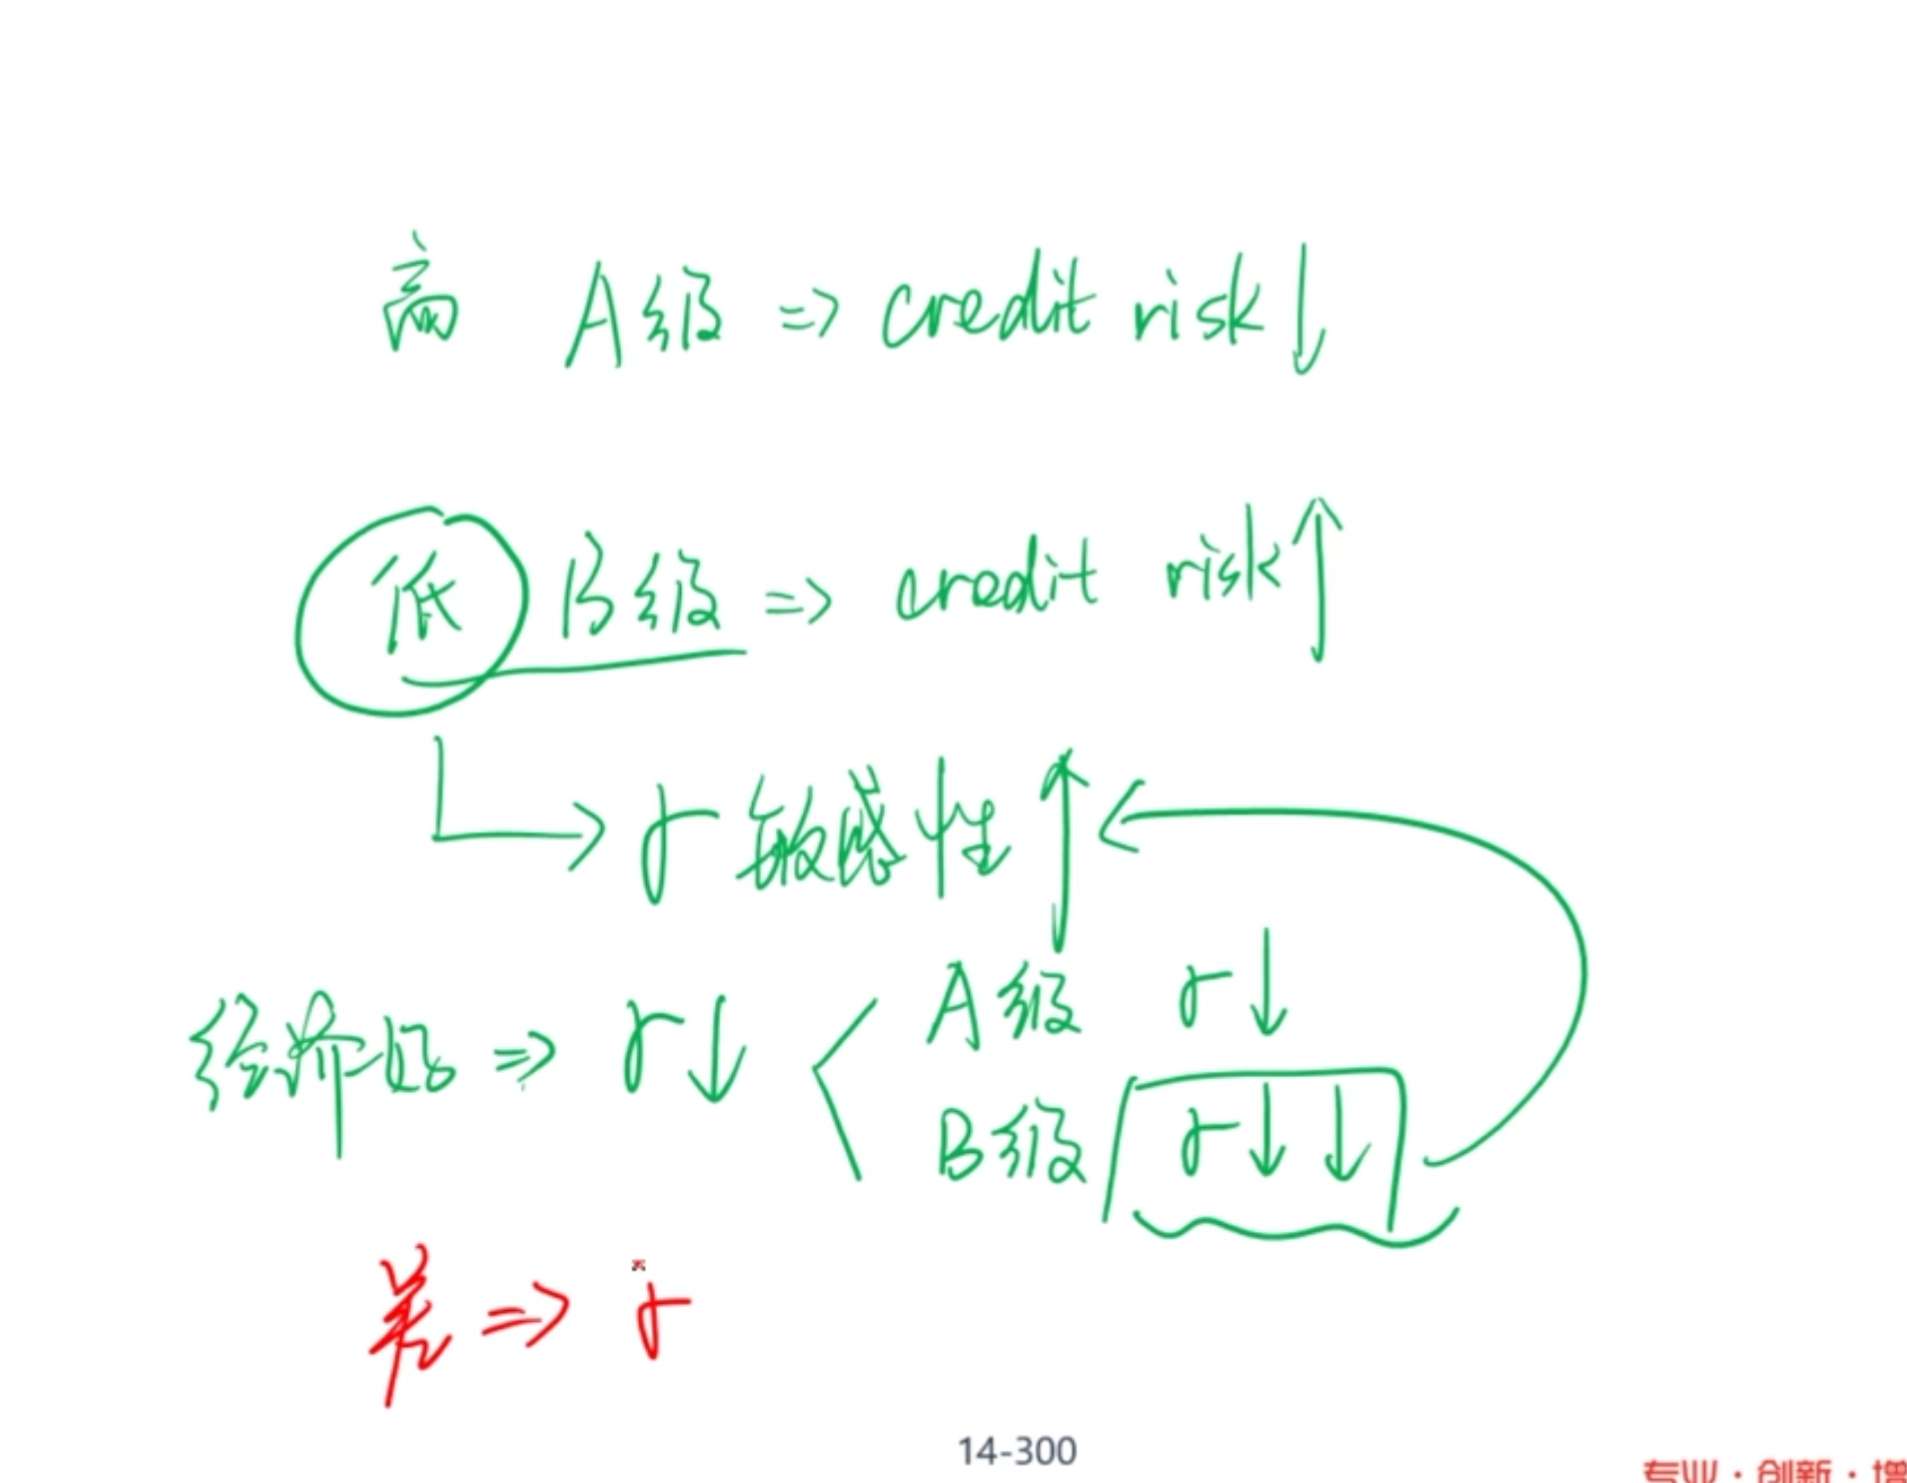 高 A级 => credit risk↓
低 B级 => credit risk↑
r 敏感性↑
A级 r↓
经济好 => r↓
B级 r↓↓
差 => r
14-300
专业·创新·增